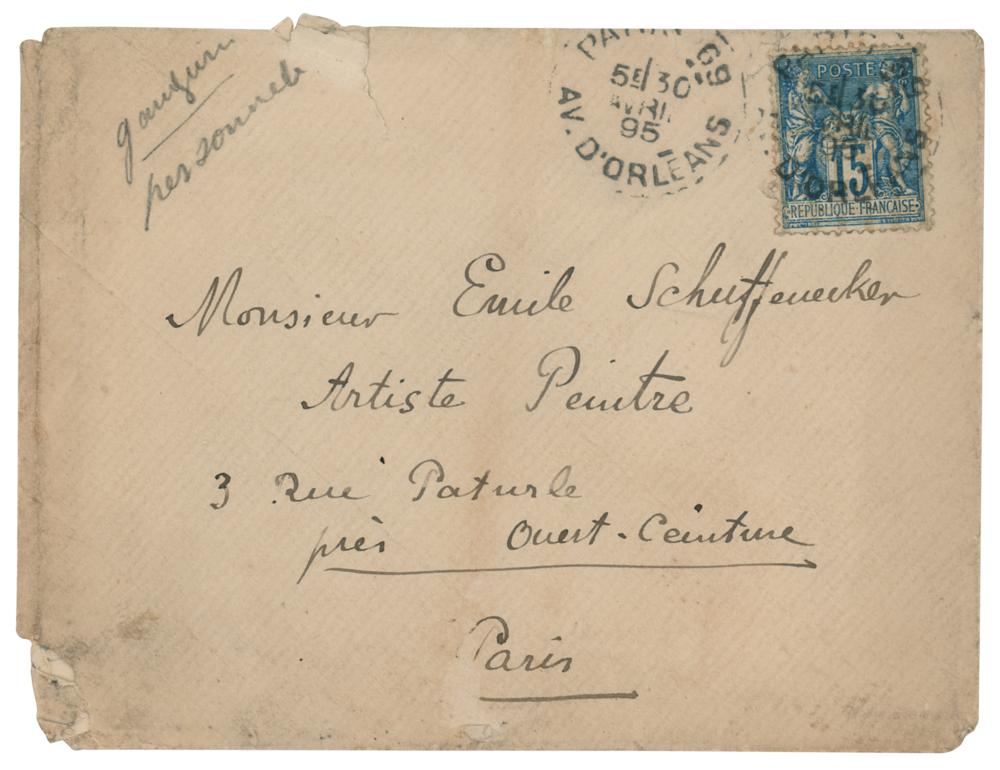 gauguin
personnel
PARIS 69
5E 30
AVRIL
95
AV. D'ORLEANS
POSTES
15
REPUBLIQUE FRANCAISE
Monsieur Emile Schuffenecker
Artiste Peintre
3 Rue Paturle
près Ouest-Ceinture
Paris